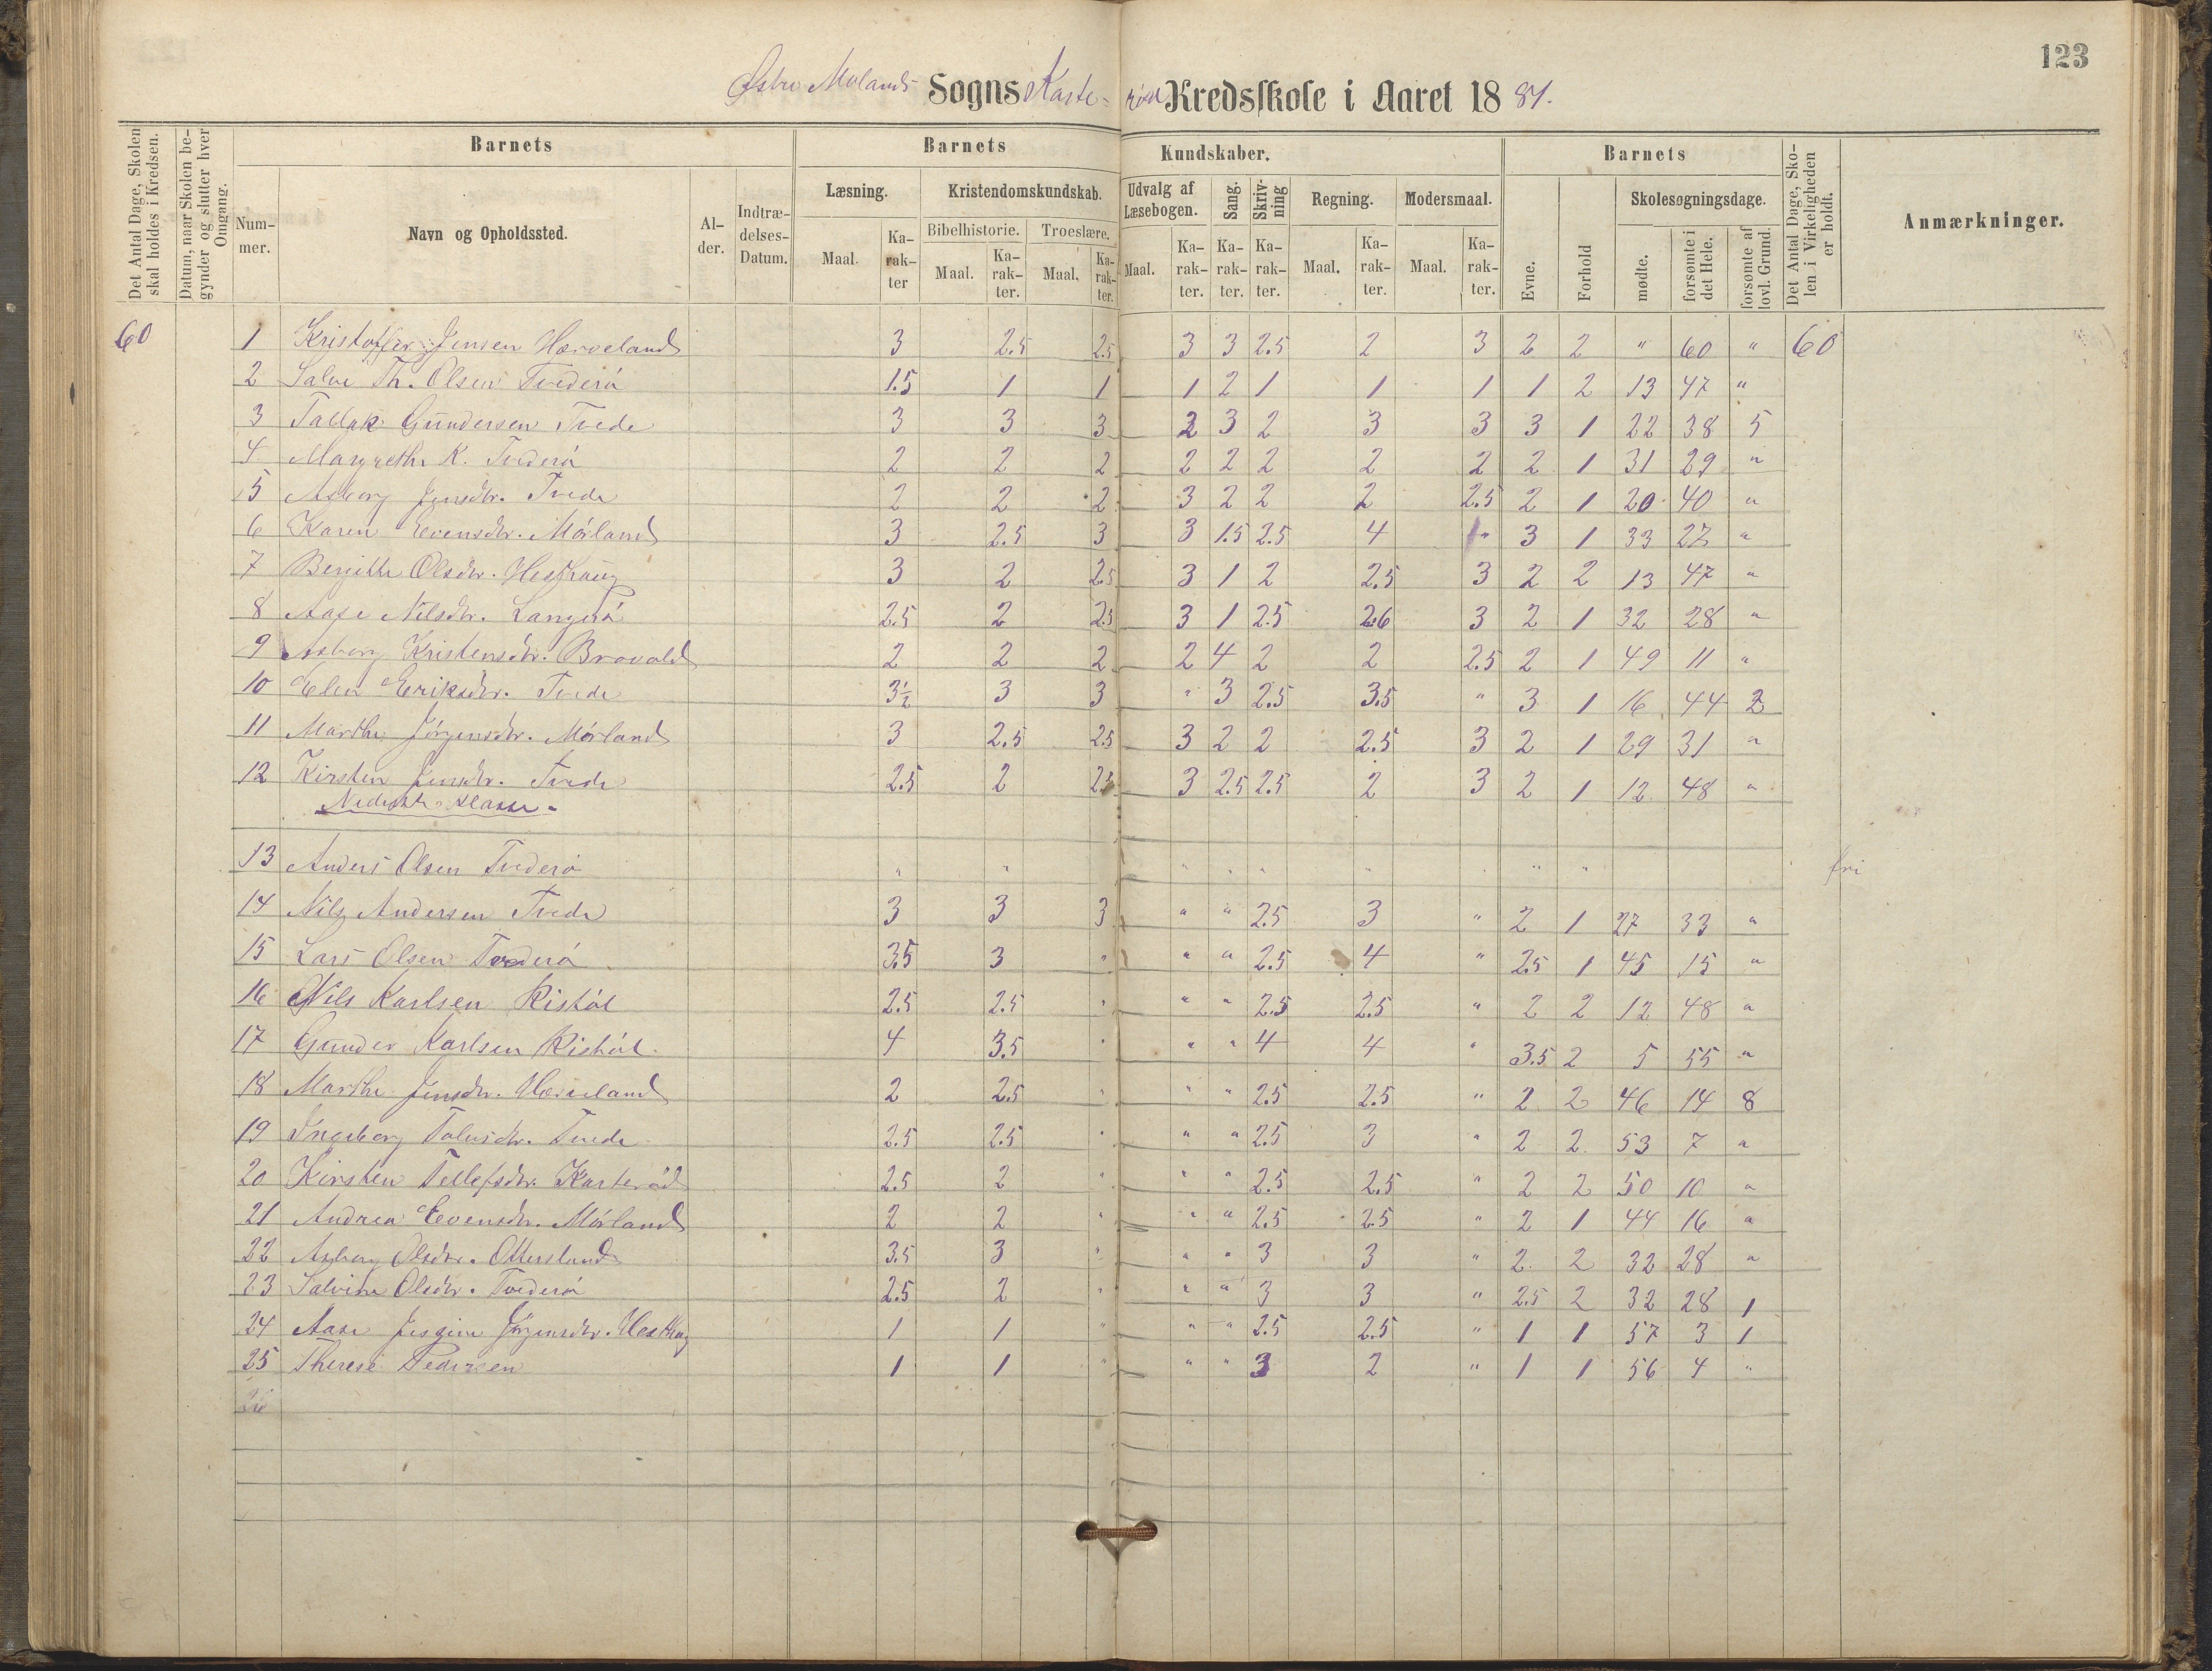 123
Østre Molands Sogns Karte-rød Kredsskole i Aaret 1881.
Det Antal Dage, Skolen skal holdes i Kredsen.
Datum, naar Skolen begynder og slutter hver Omgang.
Barnets
Nummer.
Navn og Opholdssted.
Alder.
Indtrædelses-Datum.
Barnets Kundskaber.
Læsning.
Maal.
Karakter
Kristendomskundskab.
Bibelhistorie.
Maal.
Karakter.
Troeslære.
Maal.
Karakter.
Udvalg af Læsebogen.
Maal.
Karakter.
Sang.
Karakter.
Skrivning
Karakter.
Regning.
Maal.
Karakter.
Modersmaal.
Maal.
Karakter.
Barnets
Evne.
Forhold
Skolesøgningsdage.
mødte.
forsømte i det Hele.
forsømte af lovl. Grund.
Det Antal Dage, Skolen i Virkeligheden er holdt.
Anmærkninger.
60 1 Kristoffer Jensen Hærveland 3 2.5 2.5 3 3 2.5 2 3 2 2 " 60 " 60
2 Salve Th. Olsen Tvederø 1.5 1 1 1 2 1 1 1 1 2 13 47 "
3 Tallak Gundersen Tvede 3 3 3 2 3 2 3 3 3 1 22 38 5
4 Margrethe K. Tvederø 2 2 2 2 2 2 2 2 2 1 31 29 "
5 Asborg Jensdtr. Tvede 2 2 2 3 2 2 2 2.5 2 1 20 40 "
6 Karen Evensdtr. Mørland 3 2.5 3 3 1.5 2.5 4 " 3 1 33 27 "
7 Bergitte Olsdtr. Hesthaug 3 2 2.5 3 1 2 2.5 3 2 2 13 47 "
8 Aase Nilsdtr. Langerø 2.5 2 2.5 3 1 2.5 2.6 3 2 1 32 28 "
9 Asborg Kristensdtr. Bravold 2 2 2 2 4 2 2 2.5 2 1 49 11 "
10 Elen Eriksdtr. Tvede 3½ 3 3 " 3 2.5 3.5 " 3 1 16 44 2
11 Marthe Jørgensdtr. Mørland 3 2.5 2.5 3 2 2 2.5 3 2 1 29 31 "
12 Kirsten Jensdtr. Tvede 2.5 2 2.5 3 2.5 2.5 2 3 2 1 12 48 "
Nederste Klasse.
13 Anders Olsen Tvederø " " " " " " " " fri
14 Nils Andersen Tvede 3 3 3 " " 2.5 3 " 2 1 27 33 "
15 Lars Olsen Tvederø 3.5 3 " " " 2.5 4 " 2.5 1 45 15 "
16 Nils Karlsen Ristøl 2.5 2.5 " " " 2.5 2.5 " 2 2 12 48 "
17 Gunder Karlsen Ristøl 4 3.5 " " " 4 4 " 3.5 2 5 55 "
18 Marthe Jensdtr. Hærveland 2 2.5 " " " 2.5 2.5 " 2 2 46 14 8
19 Ingeborg Tolvsdtr. Tvede 2.5 2.5 " " " 2.5 3 " 2 2 53 7 "
20 Kirsten Tellefsdtr. Karterød 2.5 2 " " " 2.5 2.5 " 2 2 50 10 "
21 Andrea Evensdtr. Mørland 2 2 " " " 2.5 2.5 " 2 1 44 16 "
22 Asborg Olsdtr. Ottersland 3.5 3 " " " 3 3 " 2 2 32 28 "
23 Salvine Olsdtr. Tvederø 2.5 2 " " " 3 3 " 2.5 2 32 28 1
24 Aase Jørgensdtr. Hesthag 1 1 " " " 2.5 2.5 " 1 1 57 3 1
25 Therese Pedersen 1 1 " " " 3 2 " 1 1 56 4 "
26